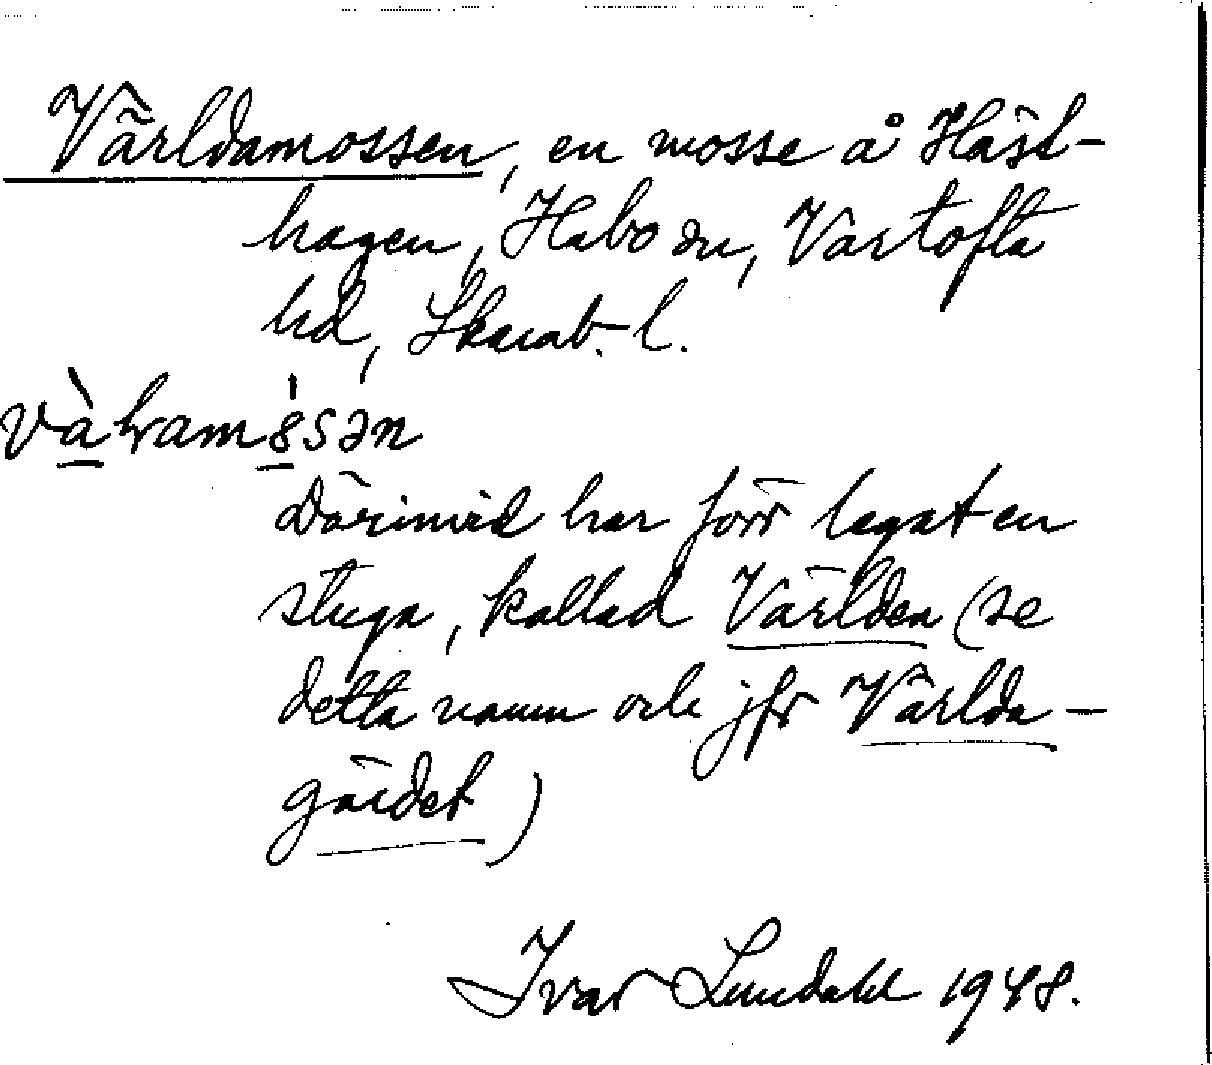 Världamossen, en mosse å Häst-
hagen, Habo sn, Vartofta
hd, Skarab. l.
Därinvid har förr legat en
stuga, kallad Världen (se
detta namn och jfr Världa-
gärdet)
Ivar Lundahl 1948.